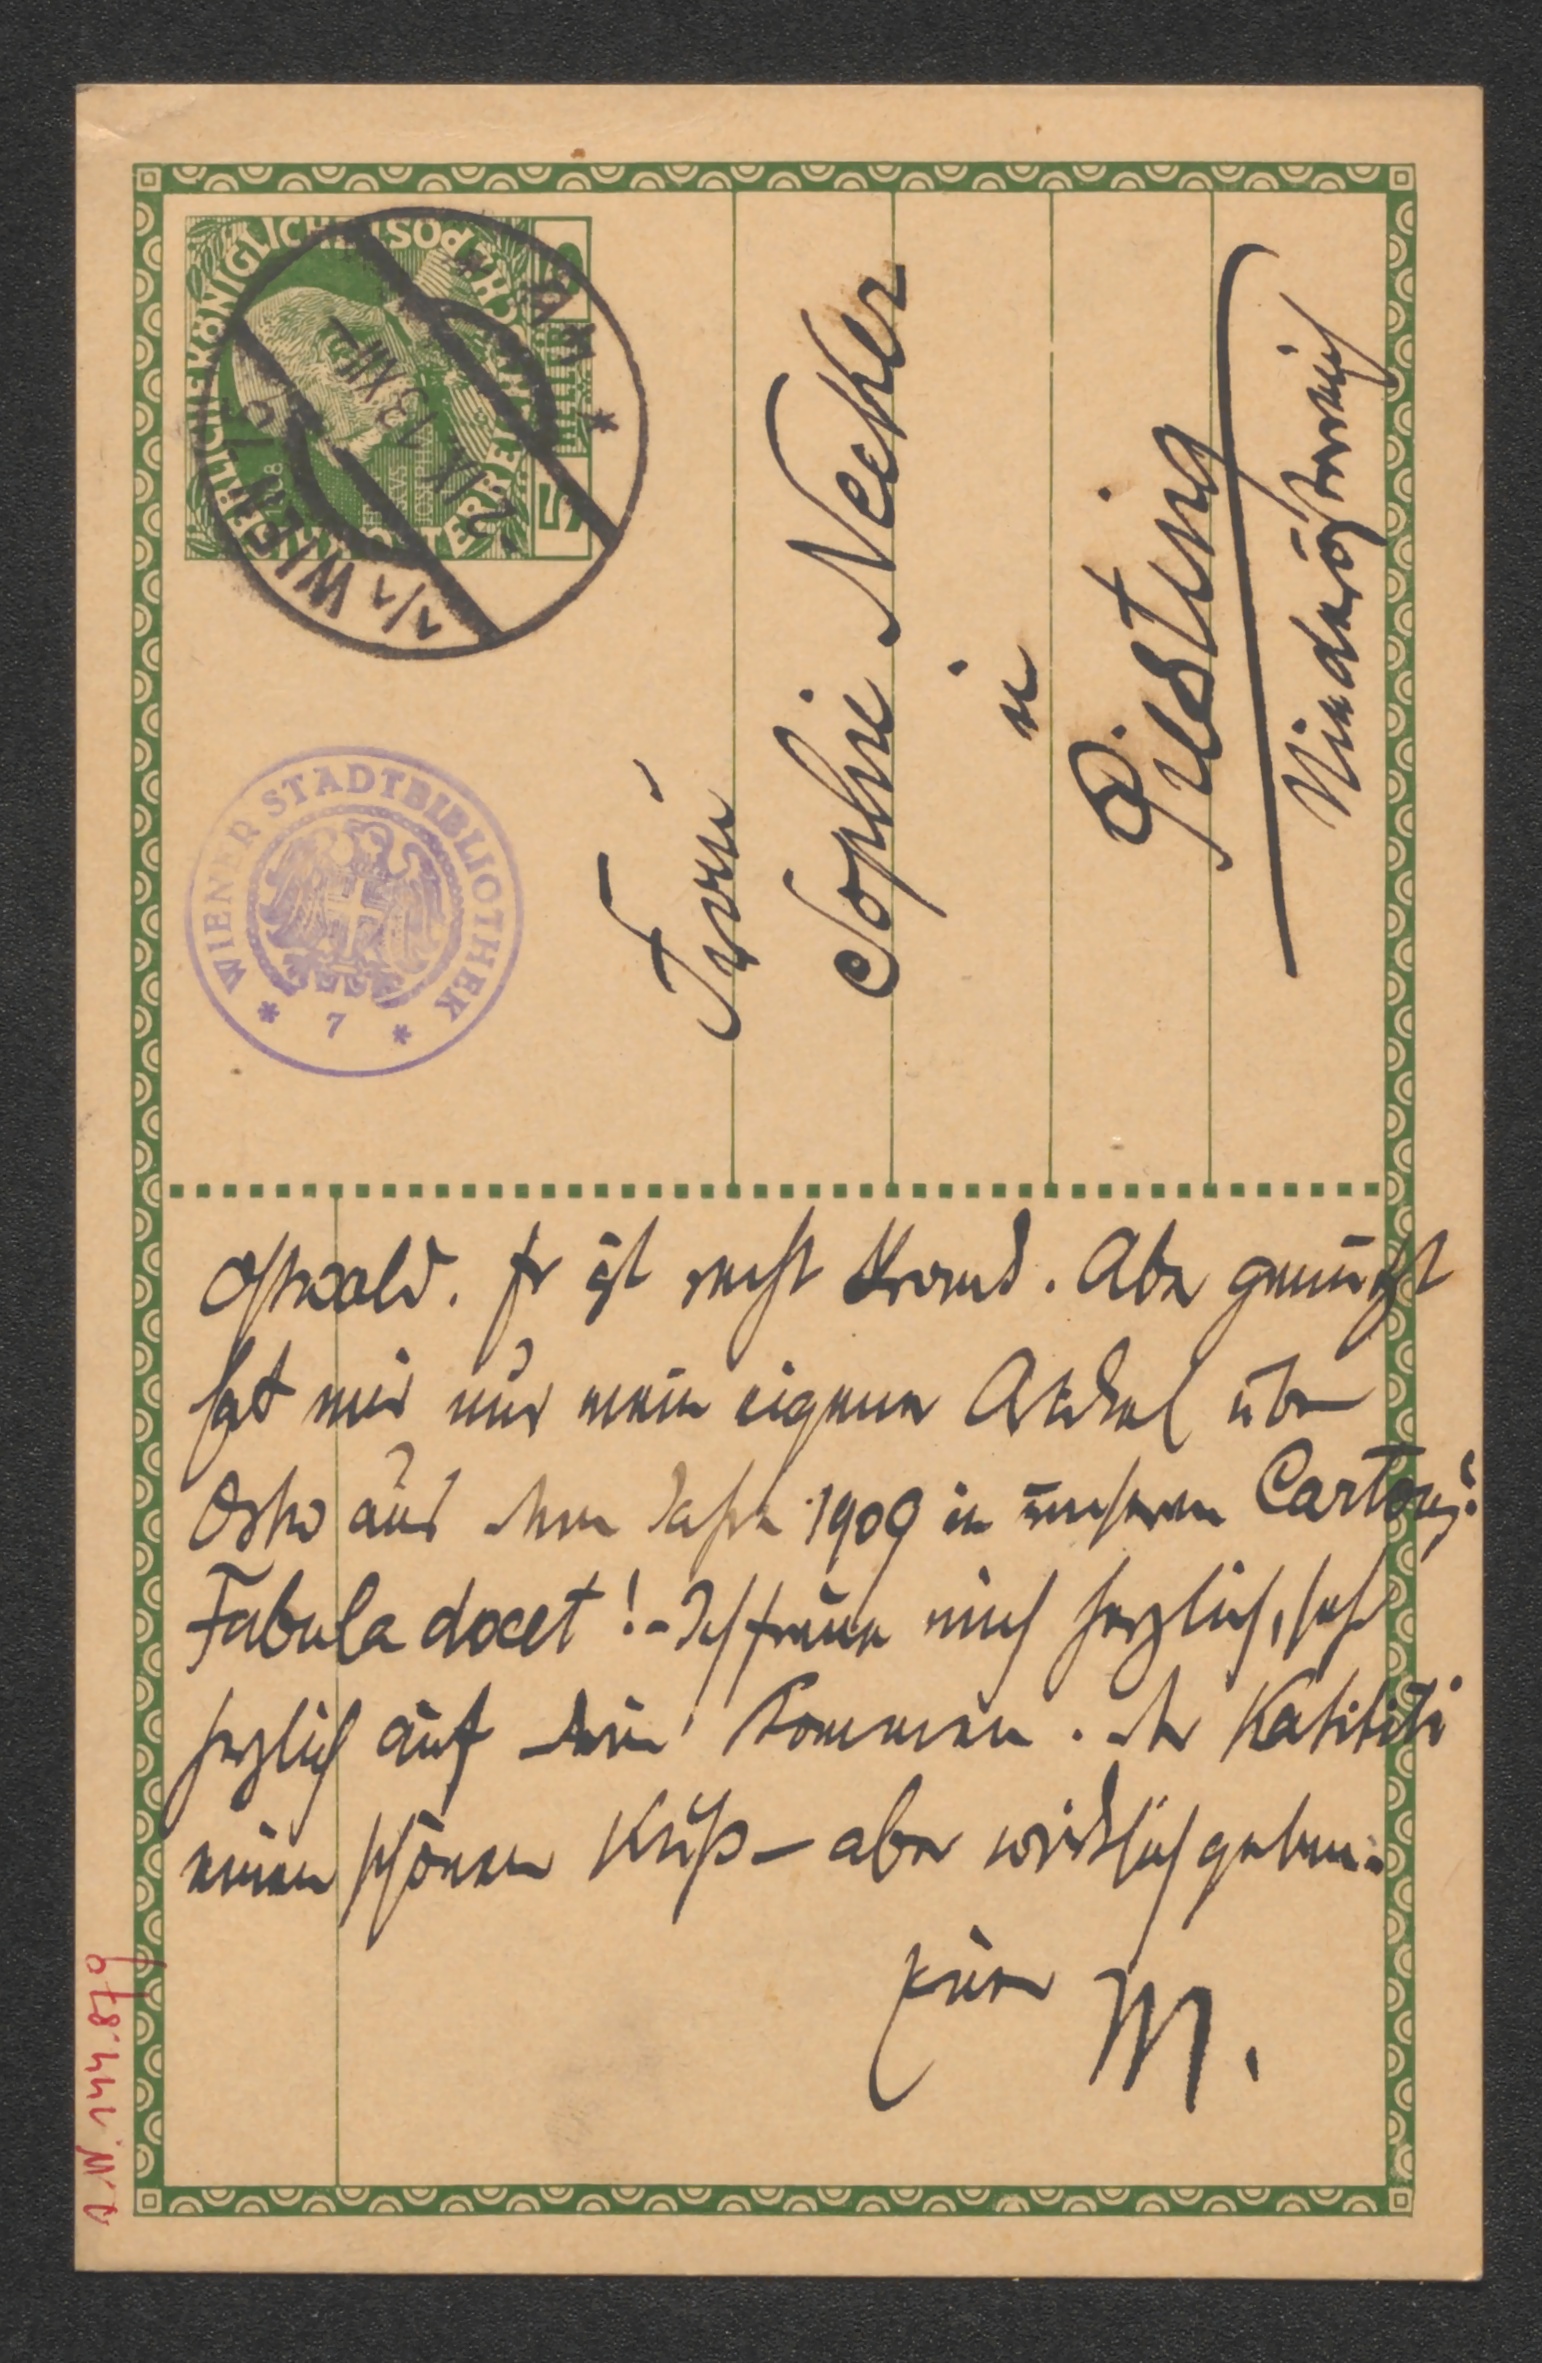 KAISERLICHE KÖNIGLICHE POST
ÖSTERREICH
5 HELLER 5
1/1 WIEN 1/1
2. IX. 13 XII
WIENER STADTBIBLIOTHEK
* 7 *
Frau
Sophie Necker
in
Piesting
Niederösterreich
Ostwald. Er ist recht krank. Aber genützt
hat mir nur mein eigener Artikel über
Ostw aus dem Jahre 1909 in unseren Cartons:
Fabula docet! - Ich freue mich herzlich, sehr
herzlich auf dein Kommen. Der Katitibi
einen schönen Kuß - aber wirklich geben.
Euer M.
I. N. 144.876